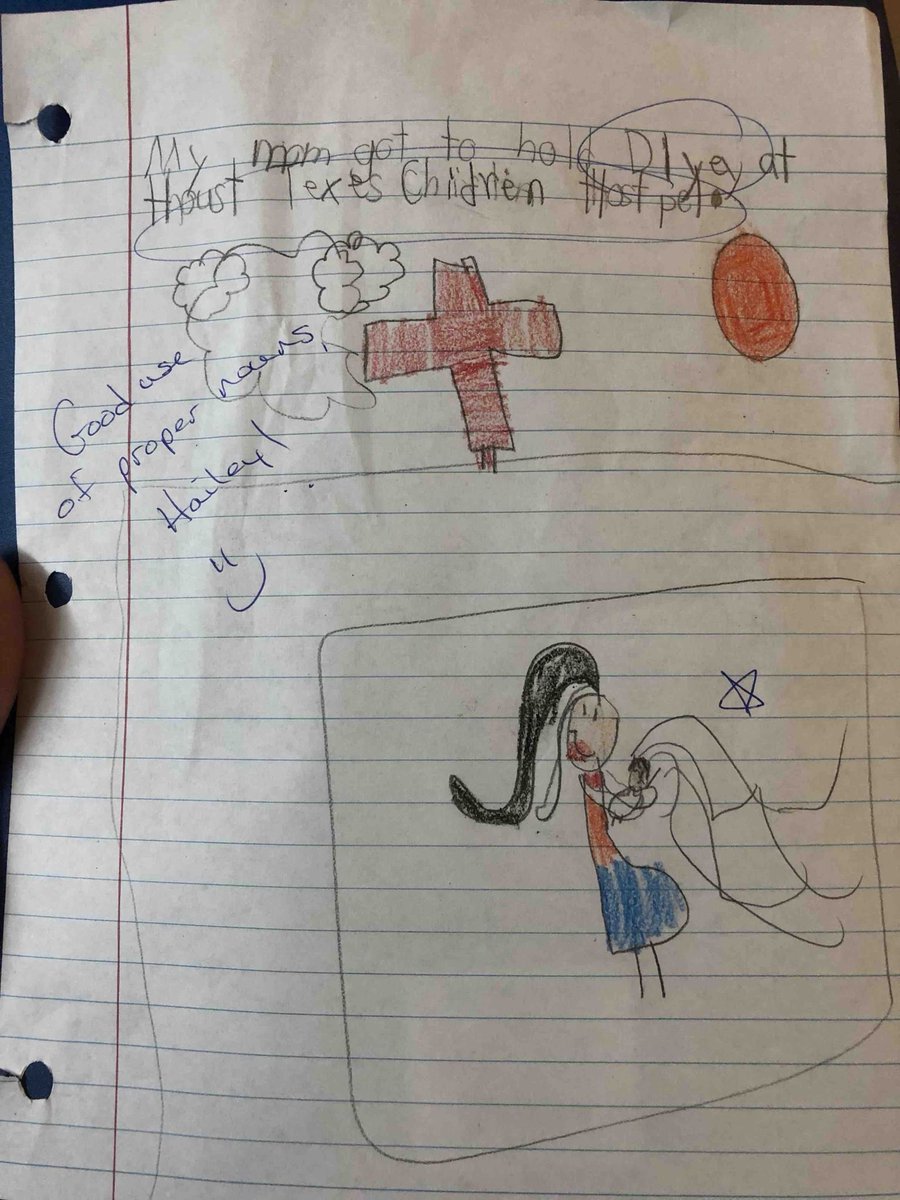 My mom got to hold Dlyey at
thoust Texes Children Hostpel.
Good use
of proper nouns,
Hailey!